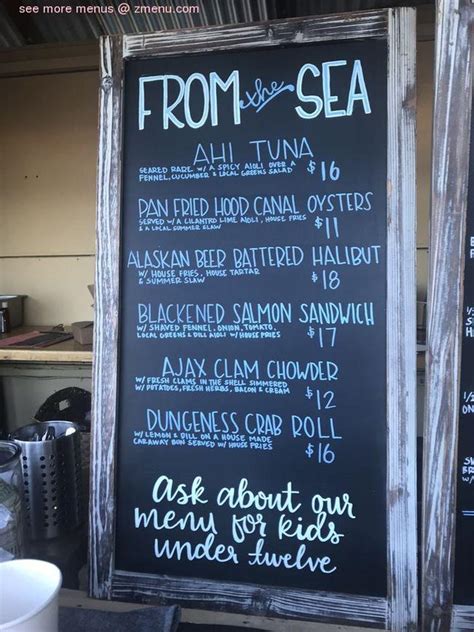 see more menus @ zmenu.com
FROM the SEA
AHI TUNA
SEARED RARE W/ A SPICY AIOLI OVER A
FENNEL, CUCUMBER & LOCAL GREENS SALAD
$16
PAN FRIED HOOD CANAL OYSTERS
SERVED W/ A CILANTRO LIME AIOLI, HOUSE FRIES
& A LOCAL SUMMER SLAW
$11
ALASKAN BEER BATTERED HALIBUT
W/ HOUSE FRIES, HOUSE TARTAR
& SUMMER SLAW
$18
BLACKENED SALMON SANDWICH
W/ SHAVED FENNEL, ONION, TOMATO,
LOCAL GREENS & DILL AIOLI W/ HOUSE FRIES
$17
AJAX CLAM CHOWDER
W/ FRESH CLAMS IN THE SHELL SIMMERED
W/ POTATOES, FRESH HERBS, BACON & CREAM
$12
DUNGENESS CRAB ROLL
W/ LEMON & DILL ON A HOUSE MADE
CARAWAY BUN SERVED W/ HOUSE FRIES
$16
Ask about our
menu for kids
under twelve